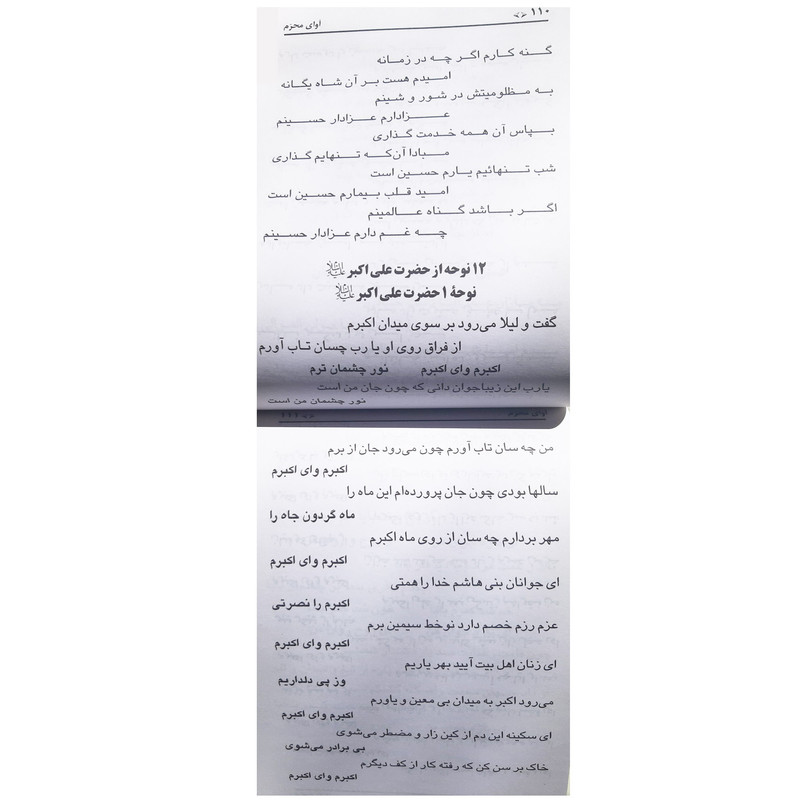 ۱۱۰
آوای محرّم
گنه کارم اگر چه در زمانه
امیدم هست بر آن شاه یگانه
به مظلومیتش در شور و شینم
عزادارم عزادار حسینم
بپاس آن همه خدمت گذاری
مبادا آن‌که تنهایم گذاری
شب تنهائیم یارم حسین است
امید قلب بیمارم حسین است
اگر باشد گناه عالمینم
چه غم دارم عزادار حسینم
۱۲ نوحه از حضرت علی اکبر علیه‌السلام
نوحهٔ ۱ حضرت علی اکبر علیه‌السلام
گفت و لیلا می‌رود بر سوی میدان اکبرم
از فراق روی او یا رب چسان تاب آورم
اکبرم وای اکبرم نور چشمان ترم
یارب این زیباجوان دانی که چون جان من است
نور چشمان من است
آوای محرّم
من چه سان تاب آورم چون می‌رود جان از برم
اکبرم وای اکبرم
سالها بودی چون جان پرورده‌ام این ماه را
ماه گردون جاه را
مهر بردارم چه سان از روی ماه اکبرم
اکبرم وای اکبرم
ای جوانان بنی هاشم خدا را همتی
اکبرم را نصرتی
عزم رزم خصم دارد نوخط سیمین برم
اکبرم وای اکبرم
ای زنان اهل بیت آیید بهر یاریم
وز پی دلداریم
می‌رود اکبر به میدان بی معین و یاورم
اکبرم وای اکبرم
ای سکینه این دم از کین زار و مضطر می‌شوی
بی برادر می‌شوی
خاک بر سن کن که رفته کار از کف دیگرم
اکبرم وای اکبرم